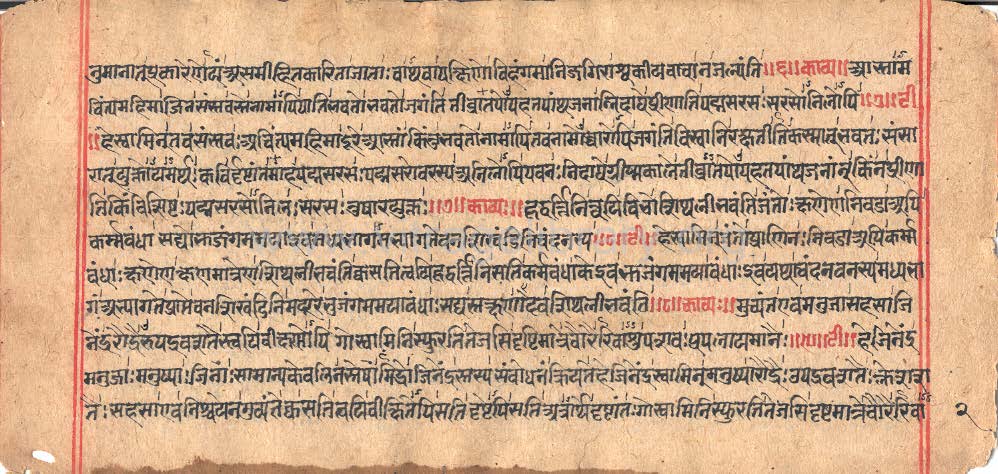 नुमानात्तुप्रकारेणेत्थंअसमीक्षितकारिताजाताः वाथवापक्षिणोविहंगमानिजगिराश्वकीयवाचानजल्पंति॥६॥काव्य॥आस्ताम
चिंत्यमहिमाजिनसंस्तवस्तेनामापिपातिभवतोभवतोजगंति तीव्रातपोपहतपांथजनान्निदाघेप्रीणातिपद्मसरसःसरसोनिलोपि॥७॥टी
॥हेस्वामिन्तवसंस्तवःअचिंत्यमहिमादूरेआस्तांकिंतुभवतोनामापितवनामजगंतिविस्वानिरक्षतीतिकस्मात्भवतःसंसा
रात्अर्थःकविर्दृष्टांतमाहपद्मसरसःपद्मसरोवरस्यअनिलोपिपवनःनिदाघेग्रीष्मकालेतीव्रातपोपहतपांथजनान्किंनप्रीणा
तिकिंविशिष्टःपद्मसरसोनिलःसरसःतुषारयुक्तः॥७॥काव्यः॥हृद्वर्त्तिनित्वयिविभोशिथलीभवंतिजंतोःक्षणेणनिवडाअपि
कर्म्मबंधा सद्योभुजंगममयाइवमध्यभागमभ्यागतेवनशिखंडिनिचंदनस्य॥८॥टी॥हेस्वामिन्जंतोप्राणिनःनिवडाअपिकर्म
बंधाःक्षणेणक्षणमात्रेणशिथलीभवंतिक्वसतित्वयिहृद्वर्त्तिनिसतिकर्मबंधाकेइवभुजंगममयाबंधाःइवयथाचंदनवनस्यमध्यभा
गंअभ्यागतेप्राप्तेवनशिखंडिनिमयूरेभुजंगममयाबंधाःसद्यस्तत्क्षणादेवशिथलीभवंति॥८॥काव्यः॥मुच्यंतएवमनुजासहसाजि
नेंद्ररौद्रैरुपद्रवशतैस्त्वयिवीक्षितेपि गोस्वामिनिस्फुरिततेजसिदृष्टिमात्रेचौरैरिवाशुपशवःप्रपलायमानैः॥९॥टी॥हेजिनेंद्र
मनुजाःमनुष्याःजिनाःसामान्यकेवलिनस्तेषामिंद्रोजिनेंद्रस्तस्यसंबोधनंक्रियतेहेजिनेंद्रस्वामिन्मनुष्यारौद्रैःउपद्रवशतैः
सहसाएवनिश्चयेनमुच्यंतेक्वसतित्वयिवीक्षितेपिसतिदृष्टेपिसतिअत्रार्थेदृष्टांतःगोस्वामिनिस्फुरिततेजसिदृष्टमात्रेचौरैरिवा २